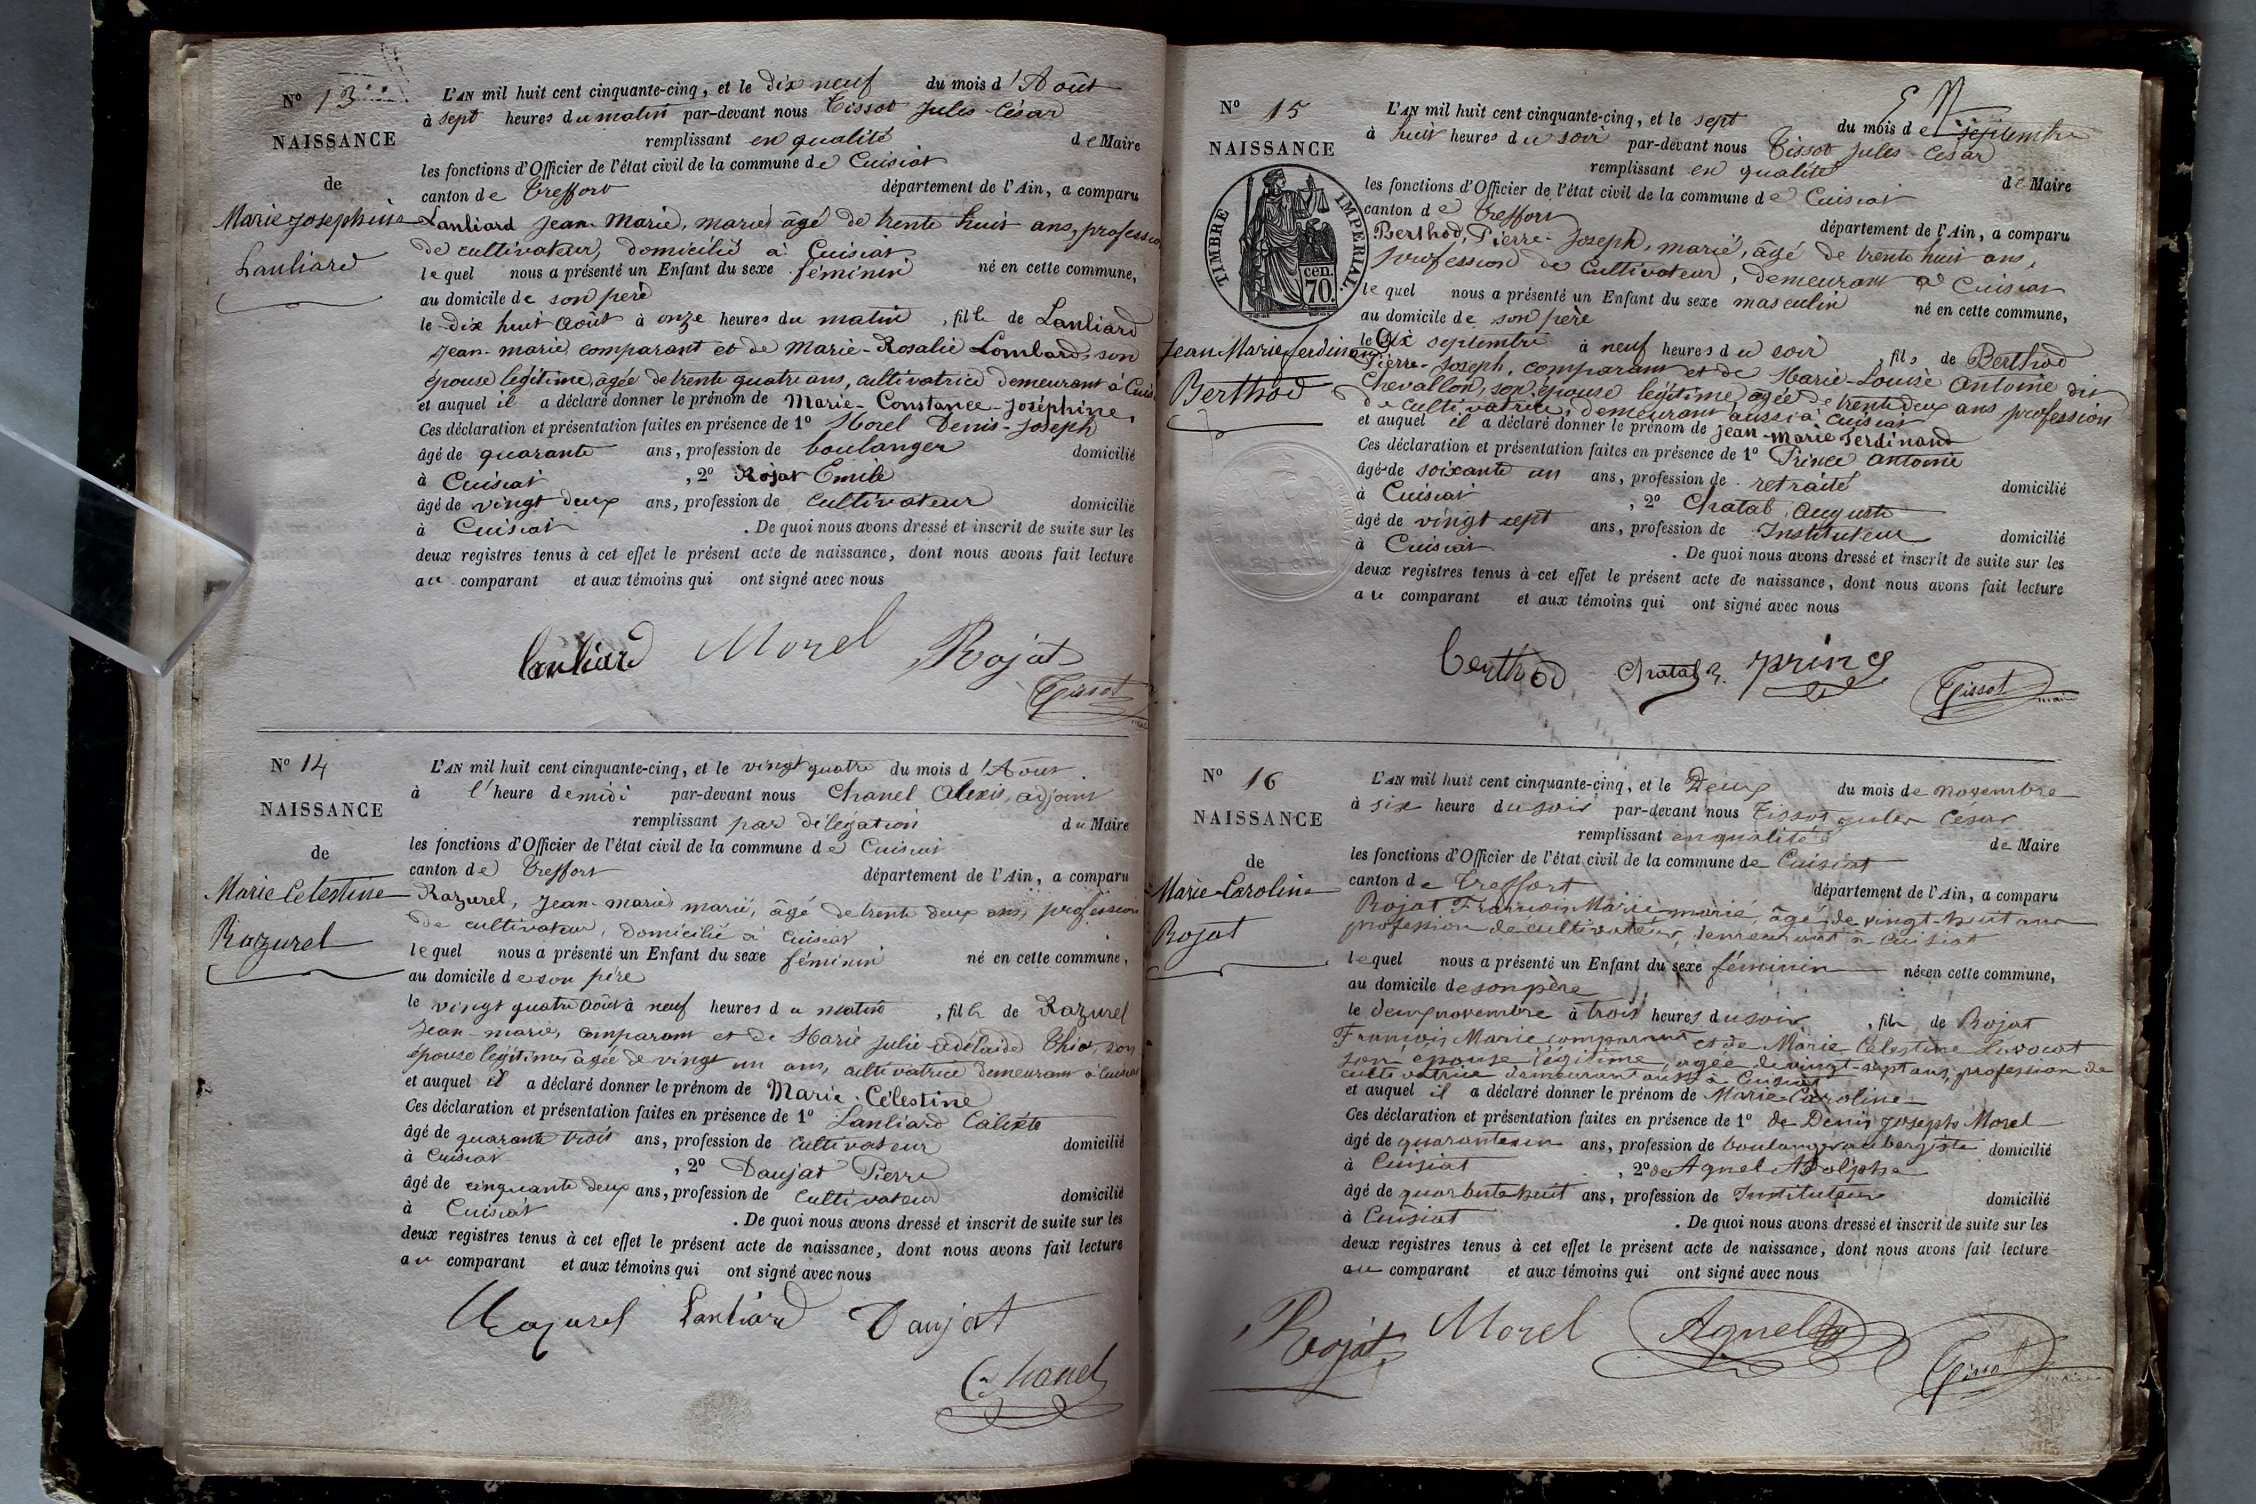 N° 13
NAISSANCE
de
Marie Josephine
Lanliard
L'AN mil huit cent cinquante-cinq, et le dix neuf du mois d'Août
à sept heures du matin par-devant nous Tissot Jules-César
remplissant en qualité de Maire
les fonctions d'Officier de l'état civil de la commune de Cuisiat
canton de Treffort département de l'Ain, a comparu
Lanliard Jean-Marie, marié, âgé de trente huit ans, profession
de cultivateur, domicilié à Cuisiat
lequel nous a présenté un Enfant du sexe féminin né en cette commune,
au domicile de son père
le dix huit août à onze heures du matin, fille de Lanliard
Jean-marie, comparant et de Marie-Rosalie Lombard, son
épouse légitime, âgée de trente quatre ans, cultivatrice demeurant à Cuis
et auquel il a déclaré donner le prénom de Marie-Constance-Joséphine,
Ces déclaration et présentation faites en présence de 1° Morel Denis-Joseph
âgé de quarante ans, profession de boulanger domicilié
à Cuisiat, 2° Rojat Emile
âgé de vingt deux ans, profession de cultivateur domicilié
à Cuisiat. De quoi nous avons dressé et inscrit de suite sur les
deux registres tenus à cet effet le présent acte de naissance, dont nous avons fait lecture
au comparant et aux témoins qui ont signé avec nous
Lanliard Morel Rojat
Tissot
N° 14
NAISSANCE
de
Marie Celestine
Razurel
L'AN mil huit cent cinquante-cinq, et le vingt quatre du mois d'Aout
à l'heure de midi par-devant nous Chanel Alexis, adjoint
remplissant par délégation du Maire
les fonctions d'Officier de l'état civil de la commune de Cuisiat
canton de Treffort département de l'Ain, a comparu
Razurel, Jean-marie, marié, âgé de trente deux ans, profession
de cultivateur, domicilié à Cuisiat
lequel nous a présenté un Enfant du sexe féminin né en cette commune,
au domicile de son père
le vingt quatre août à neuf heures du matin, fille de Razurel
Jean-marie, comparant et de Marie Julie-adelaide Thio, son
épouse légitime, âgée de vingt un ans, cultivatrice demeurant à Cuisiat
et auquel il a déclaré donner le prénom de Marie-Célestine
Ces déclaration et présentation faites en présence de 1° Lanliard Calixte
âgé de quarante trois ans, profession de cultivateur domicilié
à Cuisiat, 2° Daujat Pierre
âgé de cinquante deux ans, profession de cultivateur domicilié
à Cuisiat. De quoi nous avons dressé et inscrit de suite sur les
deux registres tenus à cet effet le présent acte de naissance, dont nous avons fait lecture
au comparant et aux témoins qui ont signé avec nous
Razurel Lanliard Daujat
Chanel
N° 15
NAISSANCE
TIMBRE IMPERIAL
70 cen.
Jean Marie Ferdinand
Berthod
L'AN mil huit cent cinquante-cinq, et le sept du mois de septembre
à huit heures du soir par-devant nous Tissot Jules-César
remplissant en qualité de Maire
les fonctions d'Officier de l'état civil de la commune de Cuisiat
canton de Treffort département de l'Ain, a comparu
Berthod, Pierre-Joseph, marié, âgé de trente huit ans,
profession de cultivateur, demeurant à Cuisiat
lequel nous a présenté un Enfant du sexe masculin né en cette commune,
au domicile de son père
le six septembre à neuf heures du soir, fils de Berthod
Pierre-Joseph, comparant et de Marie-Louise Antoine dit
Chevallon, son épouse légitime, âgée de trente deux ans, profession
de cultivatrice, demeurant aussi à Cuisiat
et auquel il a déclaré donner le prénom de Jean-Marie Ferdinand
Ces déclaration et présentation faites en présence de 1° Prince Antoine
âgé de soixante un ans, profession de retraité domicilié
à Cuisiat, 2° Chatal Auguste
âgé de vingt sept ans, profession de Instituteur domicilié
à Cuisiat. De quoi nous avons dressé et inscrit de suite sur les
deux registres tenus à cet effet le présent acte de naissance, dont nous avons fait lecture
au comparant et aux témoins qui ont signé avec nous
berthod Chatal prince
Tissot maire
N° 16
NAISSANCE
de
Marie-Caroline
Rojat
L'AN mil huit cent cinquante-cinq, et le Deux du mois de novembre
à six heure du soir par-devant nous Tissot jules César
remplissant en qualité de Maire
les fonctions d'Officier de l'état civil de la commune de Cuisiat
canton de Treffort département de l'Ain, a comparu
Rojat François Marie marié, âgé de vingt-huit ans
profession de cultivateur, demeurant à Cuisiat
lequel nous a présenté un Enfant du sexe féminin née en cette commune,
au domicile de son père
le deux novembre à trois heures du soir, fille de Rojat
François Marie comparant et de Marie Célestine Luvocat
son épouse légitime, agée de vingt-sept ans, profession de
cultivatrice demeurant aussi à Cuisiat
et auquel il a déclaré donner le prénom de Marie-Caroline
Ces déclaration et présentation faites en présence de 1° de Denis Joseph Morel
âgé de quarante un ans, profession de boulanger aubergiste domicilié
à Cuisiat, 2° de Agnel Adolphe
âgé de quarante huit ans, profession de Instituteur domicilié
à Cuisiat. De quoi nous avons dressé et inscrit de suite sur les
deux registres tenus à cet effet le présent acte de naissance, dont nous avons fait lecture
au comparant et aux témoins qui ont signé avec nous
Rojat Morel Agnel
Tissot